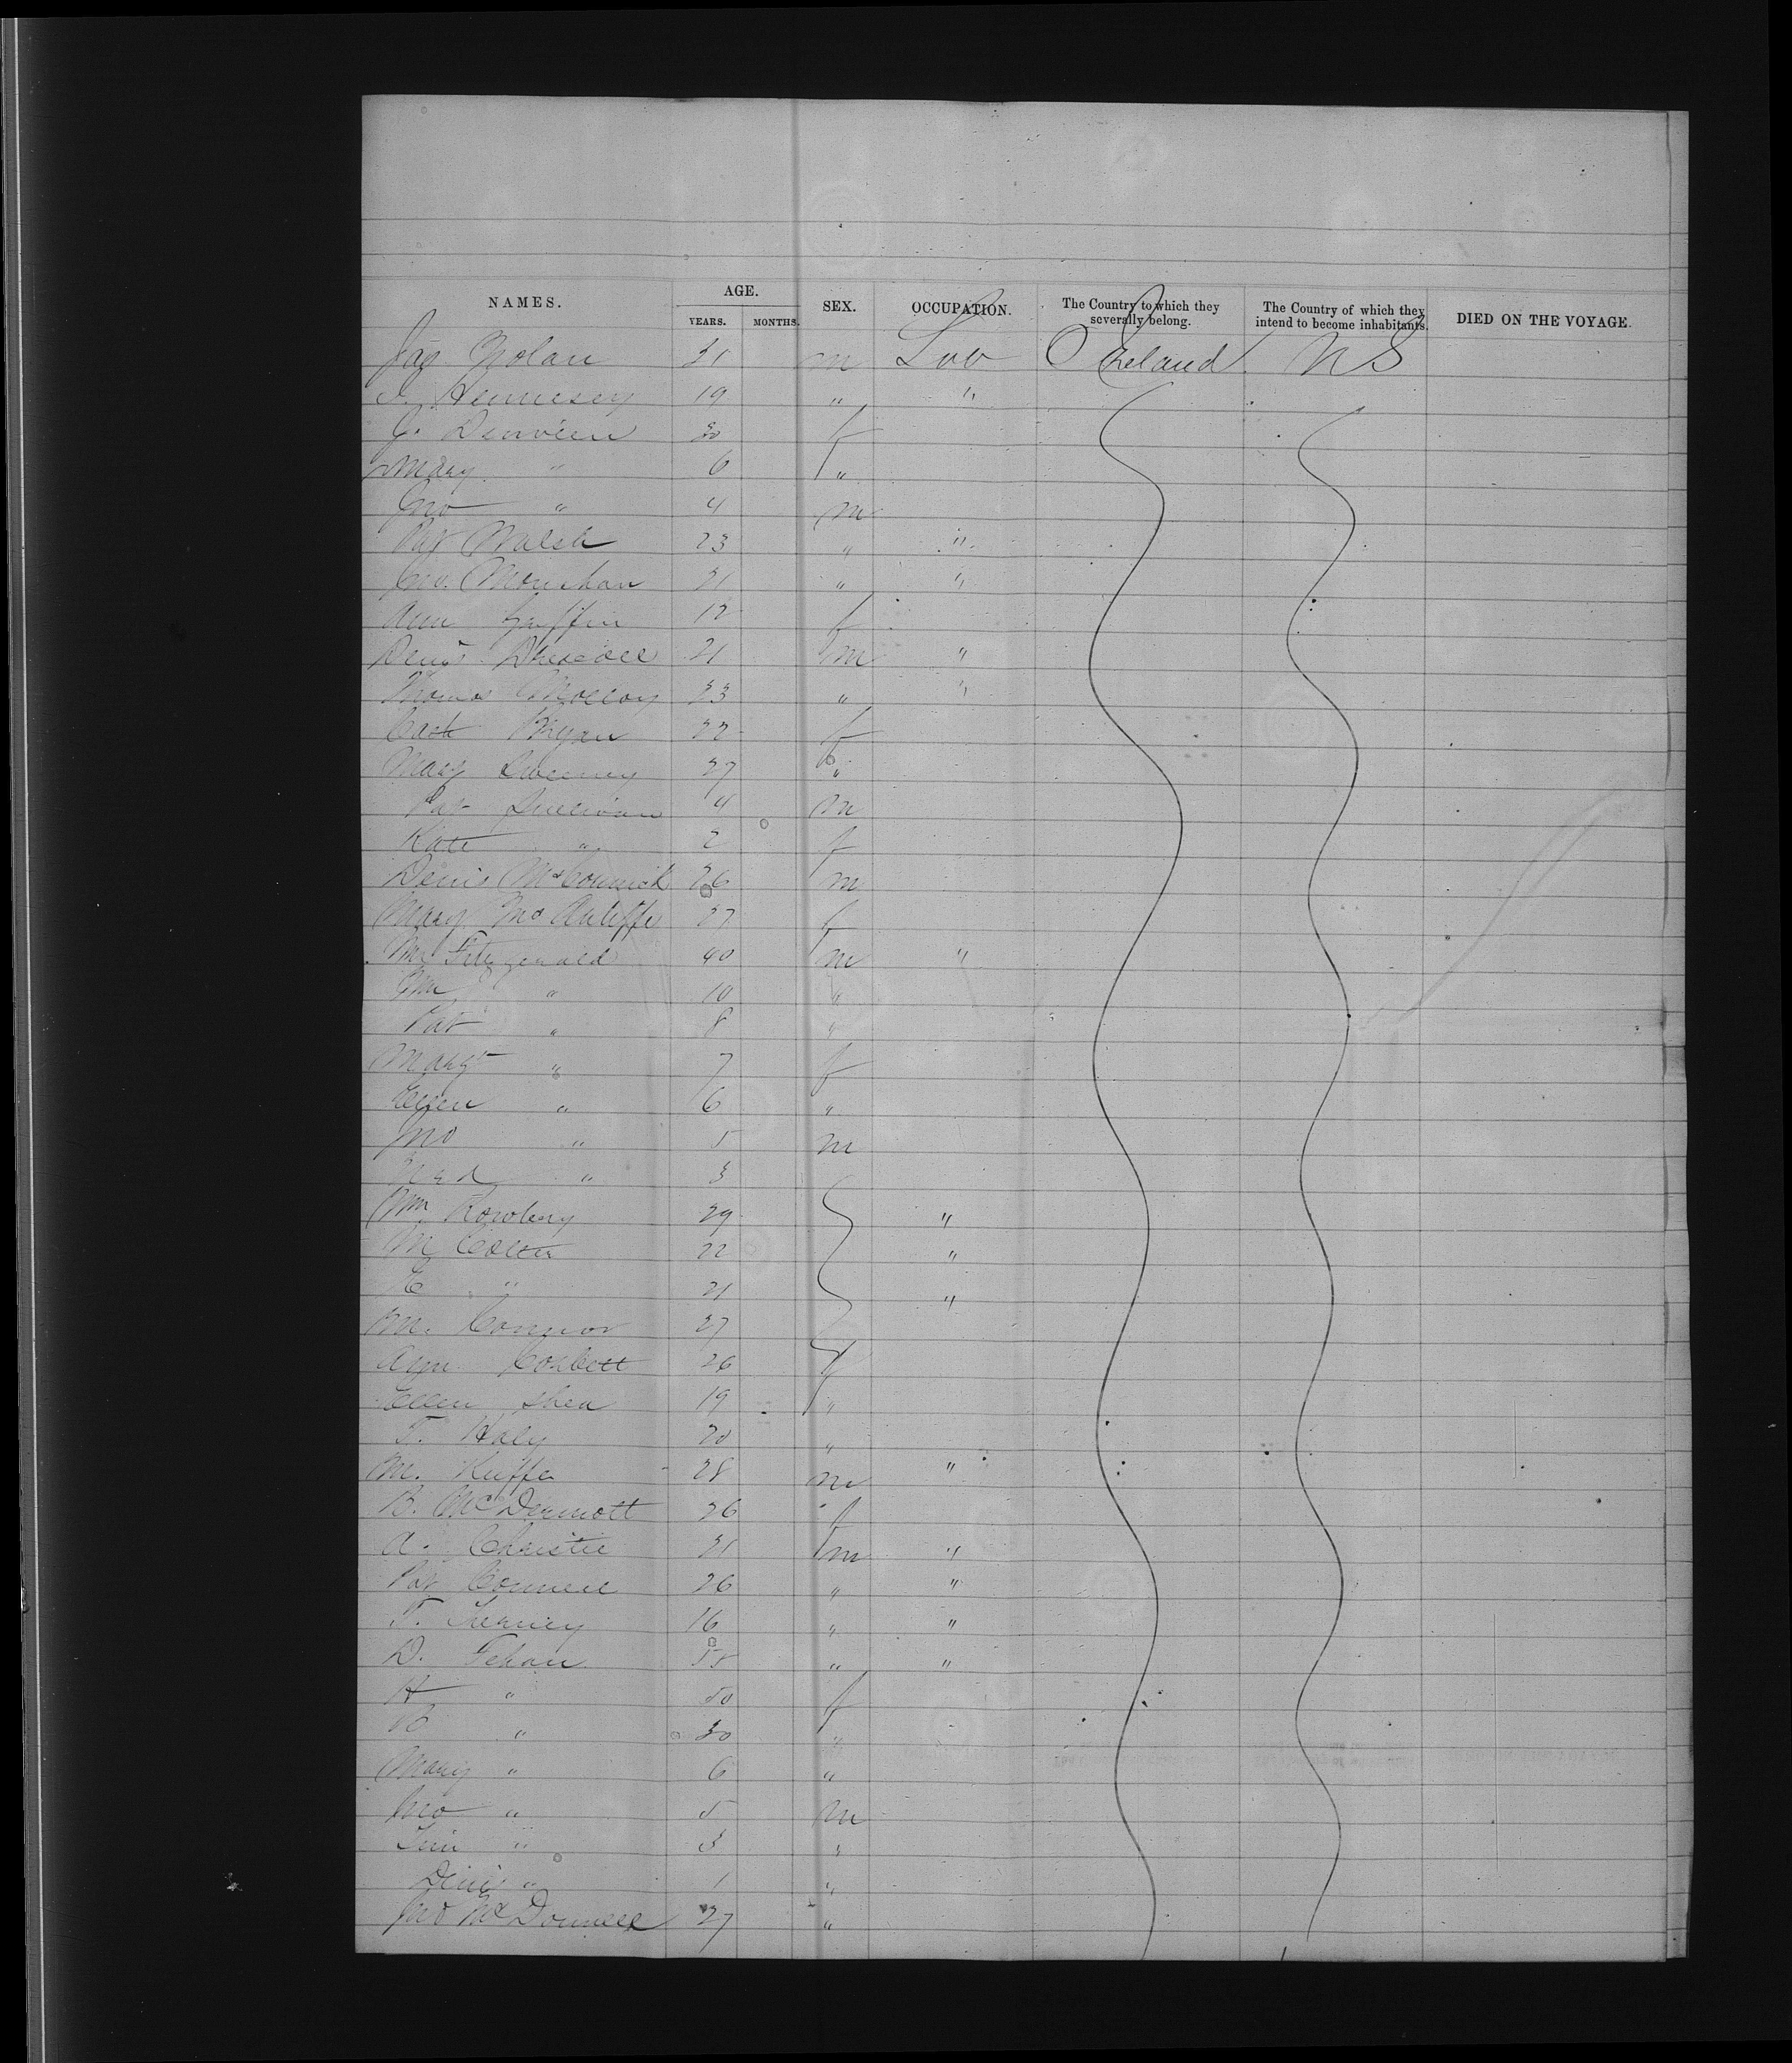 NAMES. AGE. SEX. OCCUPATION. The Country to which they severally belong. The Country of which they intend to become inhabitants. DIED ON THE VOYAGE.
YEARS. MONTHS.
Jas Nolan 31 m Lab Ireland U S
Hennesey 19 " "
J. 30 f
Mary " 6 "
Jno " 4 m
Pat Walsh 23 " "
Jno. Monahan 21 " "
Ann Griffin 12 f
Denis Driscoll 21 m "
Thomas 23 " "
Cath Bryan 22 f
Mary Sweeney 27 "
Pat Sullivan 4 m
Kate " 2 f
Denis McCormick 26 m
Mary McAuliffe 27 f
Fitzgerald 40 m "
" 10 "
Pat " 8 "
Margt " 7 f
Ellen " 6 "
Jno " 5 m
" 3
Wm 29 "
M 22 "
E " 21 "
M. Connor 27
Ann Corbett 26 f
Ellen Shea 19 "
T. Haly 20 "
M. Keiffe 28 m "
B. McDermott 26 f
A. Christie 21 m "
Pat Connell 26 " "
T. 16 " "
D. Fehan 55 " "
H " 50 f
" 30 "
Mary " 6 "
Jno " 5 m
Tim " 3 "
Denis " 1 "
Jno McDonnell 27 "